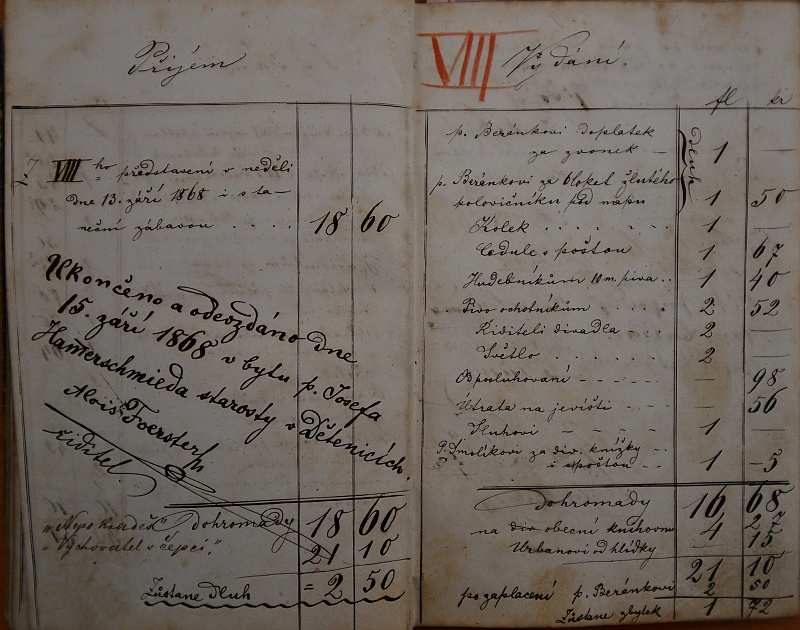 Příjem
VIII ho představení v neděli
dne 13. září 1868 i s ta-
neční zábavou . . . . 18 60
Ukončeno a odevzdáno dne
15. září 1868 v bytu p. Josefa
Hamerschmieda starosty v Dětenicích.
Alois Foerster
ředitel.
Dohromady 18 60
„Vychovatel v čepci." 21 10
Zůstane Dluh = 2 50
VIII Vydání.
fl kr
p. Beránkovi doplatek
za zvonek – 1 —
Dluh
p. Beránkovi za 6 loket žlutého
polovičníku pod mapu 1 50
Kolek . . . . . . 1 —
Cedule s poštou 1 67
Hudebníkům 10 m. piva . . 1 40
Pivo ochotníkům . . . . 2 52
Řiditeli divadla – – – 2 —
Světlo . . . . . . 2 —
Obsluhování – – – – — 98
Útrata na jevišti – – – — 56
Sluhovi – – – – 1 —
P. Smolíkovi za div. knížky – –
i s poštou – – 1 –5
Dohromady 16 68
na div obecní knihovnu 4 27
Urbanovi od hlídky – 15
21 10
po zaplacení p. Beránkovi 2 50
Zůstane zbytek 1 72